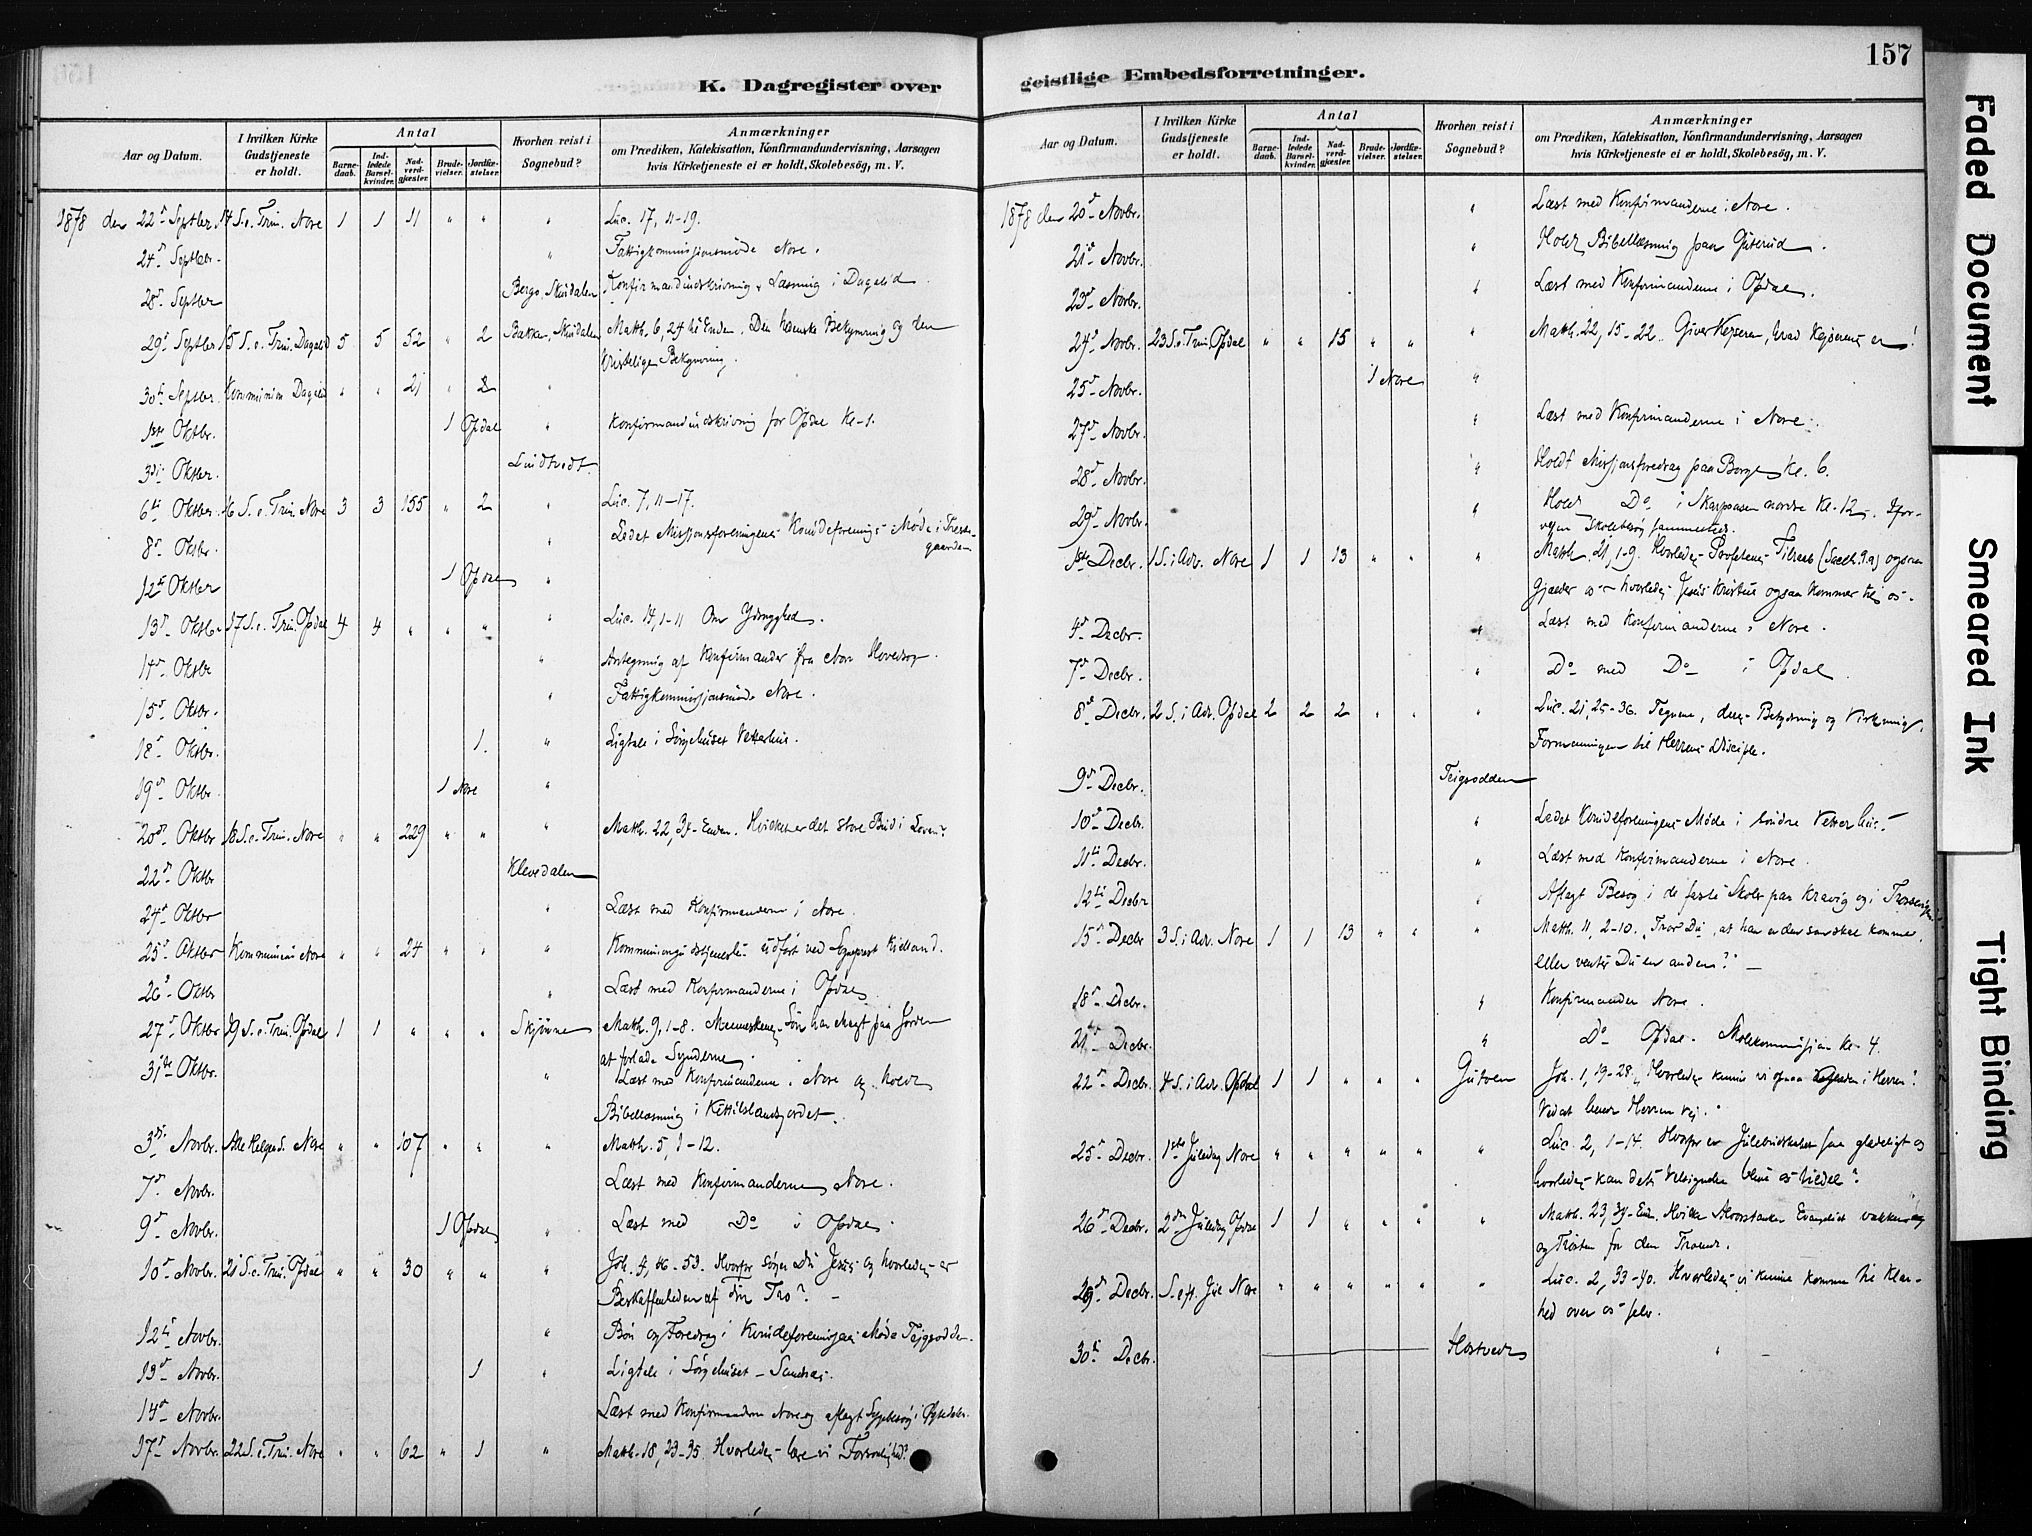 157
K. Dagregister over geistlige Embedsforretninger.
Aar og Datum. I hvilken Kirke Gudstjeneste er holdt. Antal Barnedaab. Indledede Barselkvinder. Nadverdgjæster. Brudevielser. Jordfæstelser. Hvorhen reist i Sognebud? Anmærkninger om Prædiken, Katekisation, Konfirmandundervisning, Aarsagen hvis Kirketjeneste ei er holdt, Skolebesög, m. V.
1878 den 22de Septbr. 14 S. e. Trin. Nore 1 1 11 " " " Luc. 17, 11-19.
24de Septbr. " Fattigkommissjonsmöde Nore.
28de Septbr Bergo, Skurdalen Konfirmandindskrivning & Læsning i Dagalid.
29de Septbr 15 S. e. Trin. Dagalid 5 5 52 " 2 Bakken, Skurdalen Matth. 6, 24 til Enden. Den hedenske Bekymring og den
kristelige Bekymring.
30te Septbr Kommunion Dagalid " " 21 " 2 "
1ste Oktbr. 1 Opdal " Konfirmandindskrivning for Opdal Kl. 1.
3die Oktbr. Lindtvedt.
6te Oktbr. 16 S. e. Trin. Nore 3 3 155 " 2 " Luc. 7, 11-17.
8de Oktbr. " Ledet Missjonsforeningens Kvindeforenings Möde i
12te Oktbr 1 Opdal "
13de Oktbr 17 S. e. Trin. Opdal 4 4 " " " " Luc. 14, 1-11 Om Ydmyghed.
14de Oktbr " Antegning af Konfirmander fra Nore Hovedsogn.
15de Oktbr. " Fattigkommissjonsmöde Nore.
18de Oktbr. 1. " Ligtale i Sörgehuset Vetterhus.
19de Oktbr 1 Nore "
20de Oktbr 18 S. e. Trin. Nore " " 229 " " " Matth. 22, 34-Enden. Hvilket er det store Bud i Loven?
22de Oktbr Klevedalen
24de Oktbr " Læst med Konfirmanderne i Nore.
25de Oktbr Kommunion Nore " " 24 " " " Kommuniongudstjeneste udfört ved Sognepræst Kielland.
26de Oktbr " Læst med Konfirmanderne i Opdal
27de Oktbr 19 S. e. Trin. Opdal 1 1 " " " Skjönne Matth. 9, 1-8. Menneskens Sön har Magt paa Jorden
at forlade Synderne.
31te Oktbr. " Læst med Konfirmanderne i Nore og holdt
Bibellæsning i Kittilslandsjordet.
3die Novbr. Alle Helgens S. Nore " " 107 " " " Matth. 5, 1-12.
7de Novbr. Læst med Konfirmanderne Nore.
9de Novbr. 1 Opdal " Læst med Do i Opdal.
10de Novbr. 21 S. e. Trin. Opdal " " 30 " " " Joh. 4, 46-53. Hvorfor söger Du Jesus og hvorledes er
Beskaffenheden af din Tro?
12te Novbr. " Bön og Foredrag i Kvindeforenings Möde Teigsodden.
13de Novbr. 1 " Ligtale i Sörgehuset
14de Novbr. Læst med Konfirmanderne Nore og aflagt Sygebesög i
17de Novbr. 22 S. e. Trin. Nore " " 62 " 1 " Matth. 18, 23-35 Hvorledes lære vi Forsonlighed?
Aar og Datum. I hvilken Kirke Gudstjeneste er holdt. Antal Barnedaab. Indledede Barselkvinder. Nadverdgjæster. Brudevielser. Jordfæstelser. Hvorhen reist i Sognebud? Anmærkninger om Prædiken, Katekisation, Konfirmandundervisning, Aarsagen hvis Kirketjeneste ei er holdt, Skolebesög, m. V.
1878 den 20de Novbr. " Læst med Konfirmanderne i Nore.
21de Novbr. " Holdt Bibellæsning paa Guterud.
23de Novbr. " Læst med Konfirmanderne i Opdal.
24de Novbr. 23 S. e. Trin. Opdal " " 15 " " " Matth. 22, 15-22. Giver Kejseren, hvad Kejserens er!
25de Novbr. 1 Nore "
27de Novbr. " Læst med Konfirmanderne i Nore.
28de Novbr. " Holdt Missjonsforedrag paa Borge Kl. 6.
29de Novbr. " Holdt Do i Skarpaasen nordre Kl. 12. Ifor-
vejen Skolebesög sammesteds.
1ste Decbr. 1 S. i Adv. Nore 1 1 13 " " " Matth. 21, 1-9. Hvorledes Profetens Tilraab (Sach. 9.9) ogsaa
gjælder os - hvorledes Jesus Kristus ogsaa kommer til os.
4de Decbr. " Læst med Konfirmanderne i Nore.
7de Decbr. " Do med Do i Opdal.
8de Decbr. 2 S. i Adv. Opdal 2 2 2 " " " Luc. 21, 25-36. Tegnene, deres Betydning og Virkning.
Formaningen til Herrens Disciple.
9de Decbr. Teigsodden
10de Decbr. " Ledet Kvindeforeningens Möde i söndre Vetterhus.
11te Decbr. " Læst med Konfirmanderne i Nore.
12te Decbr " Aflagt Besög i de faste Skoler paa Kravig og i
15de Decbr 3 S. i Adv. Nore 1 1 13 " " " Matth. 11, 2-10. "Tror Du, at han er den som skal komme,
eller venter Du en anden?"
18de Decbr. " Konfirmander Nore.
21de Decbr. " Do Opdal. Skolekommission Kl. 4.
22de Decbr. 4 S. i Adv. Opdal 1 1 " " " Gutven Joh. 1, 19-28. Hvorledes kunne vi ogsaa i Herren?
Ved at bane Herren Vej.
25de Decbr. 1ste Juledag Nore " " " " " " Luc. 2, 1-14. Hvorfor er Julebudskabet saa glædeligt og
hvorledes kan dets Velsignelse blive os tildel?
26de Decbr. 2den Juledag Opdal 1 1 " " " " Matth. 23, 34-End. Hvilke Evangeliet vækker og
og Trösten for den Troende.
29de Decbr. S. eft. Jul Nore " " " " " " Luc. 2, 33-40. Hvorledes vi kunne komme til Klar-
hed over os selv.
30te Decbr. Hostvedt "
Faded Document
Smeared Ink
Tight Binding